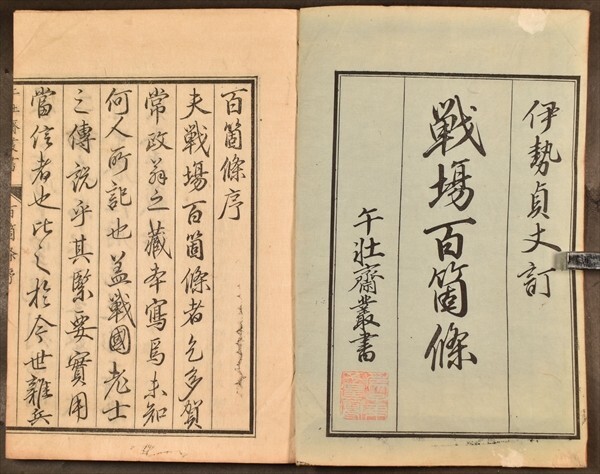 伊勢貞丈訂
戦場百箇條
午壮齋叢書
百箇條序
夫戦場百箇條者乞多賀
常政翁之藏本寫焉未知
何人所記也盖戦國老士
之傳説乎其緊要實用
當信者也比之於今世雜兵